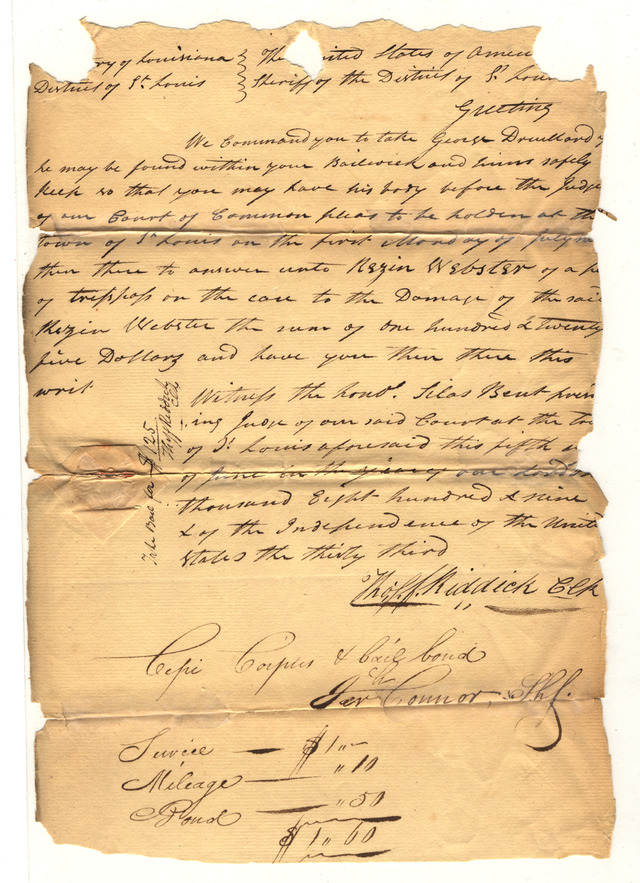 ry of Louisiana } The United States of Amer
District of St Louis } Sheriff of the District of St Loui
Greeting
We Command you to take George Drewllard
he may be found within your Bailiwick and him safely
keep so that you may have his body before the Judge
of our Court of Common pleas to be holden at the
town of St Louis on the first Monday of July
then there to answer unto Rezin Webster of a
of trespass on the case to the Damage of the said
Rezin Webster the sum of one hundred & twenty
five Dollars and have you then there this
writ
Witness the honbl. Silas Bent
ing Judge of our said Court at the
of St Louis aforesaid this fifth
of June in the year of our
thousand Eight hundred & nine
& of the Independence of the Unite
States the thirty third
Thos. F. Riddick Clk
take Bail for $125
Thos F Riddick
Clk
Cepi Corpus & bail bond
Jerh Connor, Shf.
Service — $1 "–
Mileage — " 10
Bond — " 50
$1 " 60